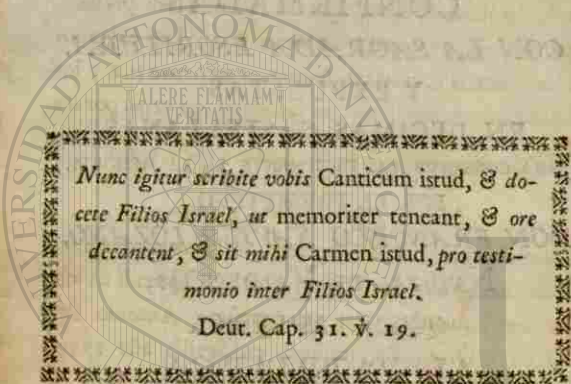 ALERE FLAMMAM
VERITATIS
Nunc igitur scribite vobis Canticum istud, & do-
cete Filios Israel, ut memoriter teneant, & ore
decantent, & sit mihi Carmen istud, pro testi-
monio inter Filios Israel.
Deut. Cap. 31. v̇. 19.